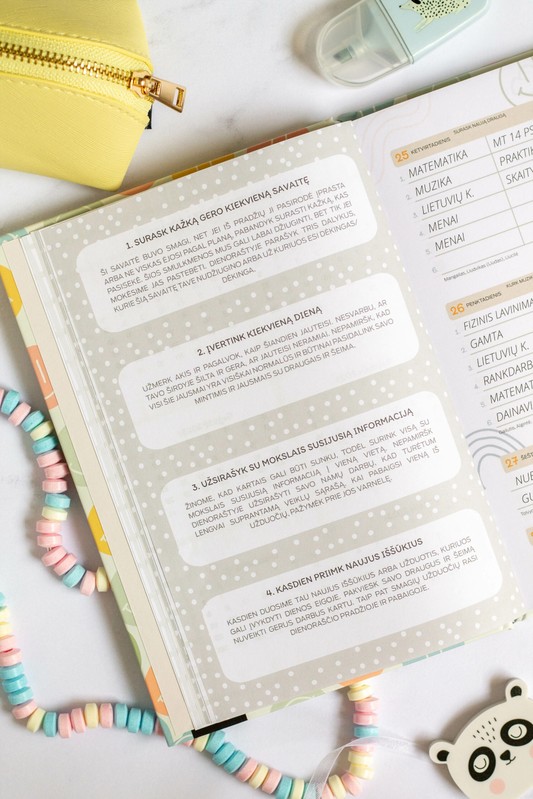 1. SURASK KAŽKĄ GERO KIEKVIENĄ SAVAITĘ
ŠI SAVAITĖ BUVO SMAGI, NET JEI IŠ PRADŽIŲ JI PASIRODĖ ĮPRASTA
ARBA NE VISKAS ĖJOSI PAGAL PLANĄ, PABANDYK SURASTI KAŽKĄ, KAS
PASISEKĖ. ŠIOS SMULKMENOS MUS GALI LABAI DŽIUGINTI, BET TIK JEI
MOKĖSIME JAS PASTEBĖTI. DIENORAŠTYJE PARAŠYK TRIS DALYKUS,
KURIE ŠIĄ SAVAITĘ TAVE NUDŽIUGINO ARBA UŽ KURIUOS ESI DĖKINGAS/
DĖKINGA.
2. ĮVERTINK KIEKVIENĄ DIENĄ
UŽMERK AKIS IR PAGALVOK, KAIP ŠIANDIEN JAUTEISI. NESVARBU, AR
TAVO ŠIRDYJE ŠILTA IR GERA, AR JAUTEISI NERAMIAI. NEPAMIRŠK, KAD
VISI ŠIE JAUSMAI YRA VISIŠKAI NORMALŪS IR BŪTINAI PASIDALINK SAVO
MINTIMIS IR JAUSMAIS SU DRAUGAIS IR ŠEIMA.
3. UŽSIRAŠYK SU MOKSLAIS SUSIJUSIĄ INFORMACIJĄ
ŽINOME, KAD KARTAIS GALI BŪTI SUNKU, TODĖL SURINK VISĄ SU
MOKSLAIS SUSIJUSIĄ INFORMACIJĄ Į VIENĄ VIETĄ. NEPAMIRŠK
DIENORAŠTYJE UŽSIRAŠYTI SAVO NAMŲ DARBŲ, KAD TURĖTUM
LENGVAI SUPRANTAMĄ VEIKLŲ SĄRAŠĄ. KAI PABAIGSI VIENĄ IŠ
UŽDUOČIŲ, PAŽYMĖK PRIE JOS VARNELĘ.
4. KASDIEN PRIIMK NAUJUS IŠŠŪKIUS
KASDIEN DUOSIME TAU NAUJUS IŠŠŪKIUS ARBA UŽDUOTIS, KURIUOS
GALI ĮVYKDYTI DIENOS EIGOJE. PAKVIESK SAVO DRAUGUS IR ŠEIMĄ
NUVEIKTI GERUS DARBUS KARTU. TAIP PAT SMAGIŲ UŽDUOČIŲ RASI
DIENORAŠČIO PRADŽIOJE IR PABAIGOJE.
25 KETVIRTADIENIS SURASK NAUJĄ DRAUGĄ
1. MATEMATIKA MT 14 PS
2. MUZIKA PRAKTI
3. LIETUVIŲ K. SKAITY
4. MENAI
5. MENAI
26 PENKTADIENIS
1. FIZINIS LAVINIMA
2. GAMTA
3. LIETUVIŲ K.
4. RANKDARB
5. MATEMAT
6. DAINAVI
27